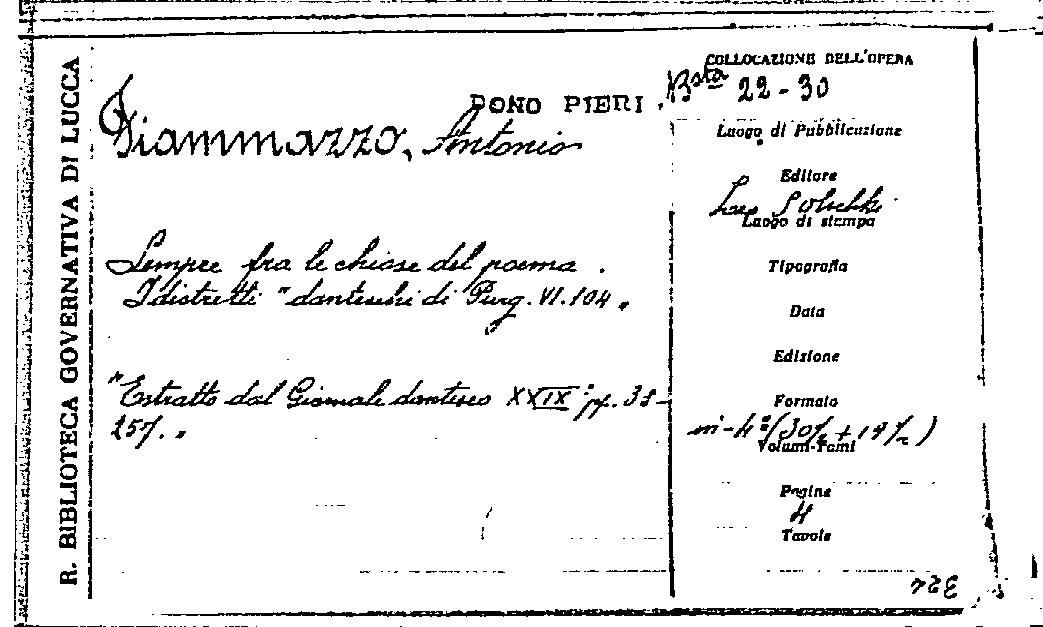 R. BIBLIOTECA GOVERNATIVA DI LUCCA
DONO PIERI.
Fiammazzo, Antonio
Sempre fra le chiose del poema.
I distretti "danteschi di Purg. VI. 104"
"Estratto dal Giornale dantesco XXIX° pp. 35-
257."
COLLOCAZIONE DELL'OPERA
Bsta 22-30
Luogo di Pubblicazione
Editore
Leo Solschki
Luogo di stampa
Tipografia
Data
Edizione
Formato
in-4°
Volumi-Tomi
Pagine
4
Tavole
324